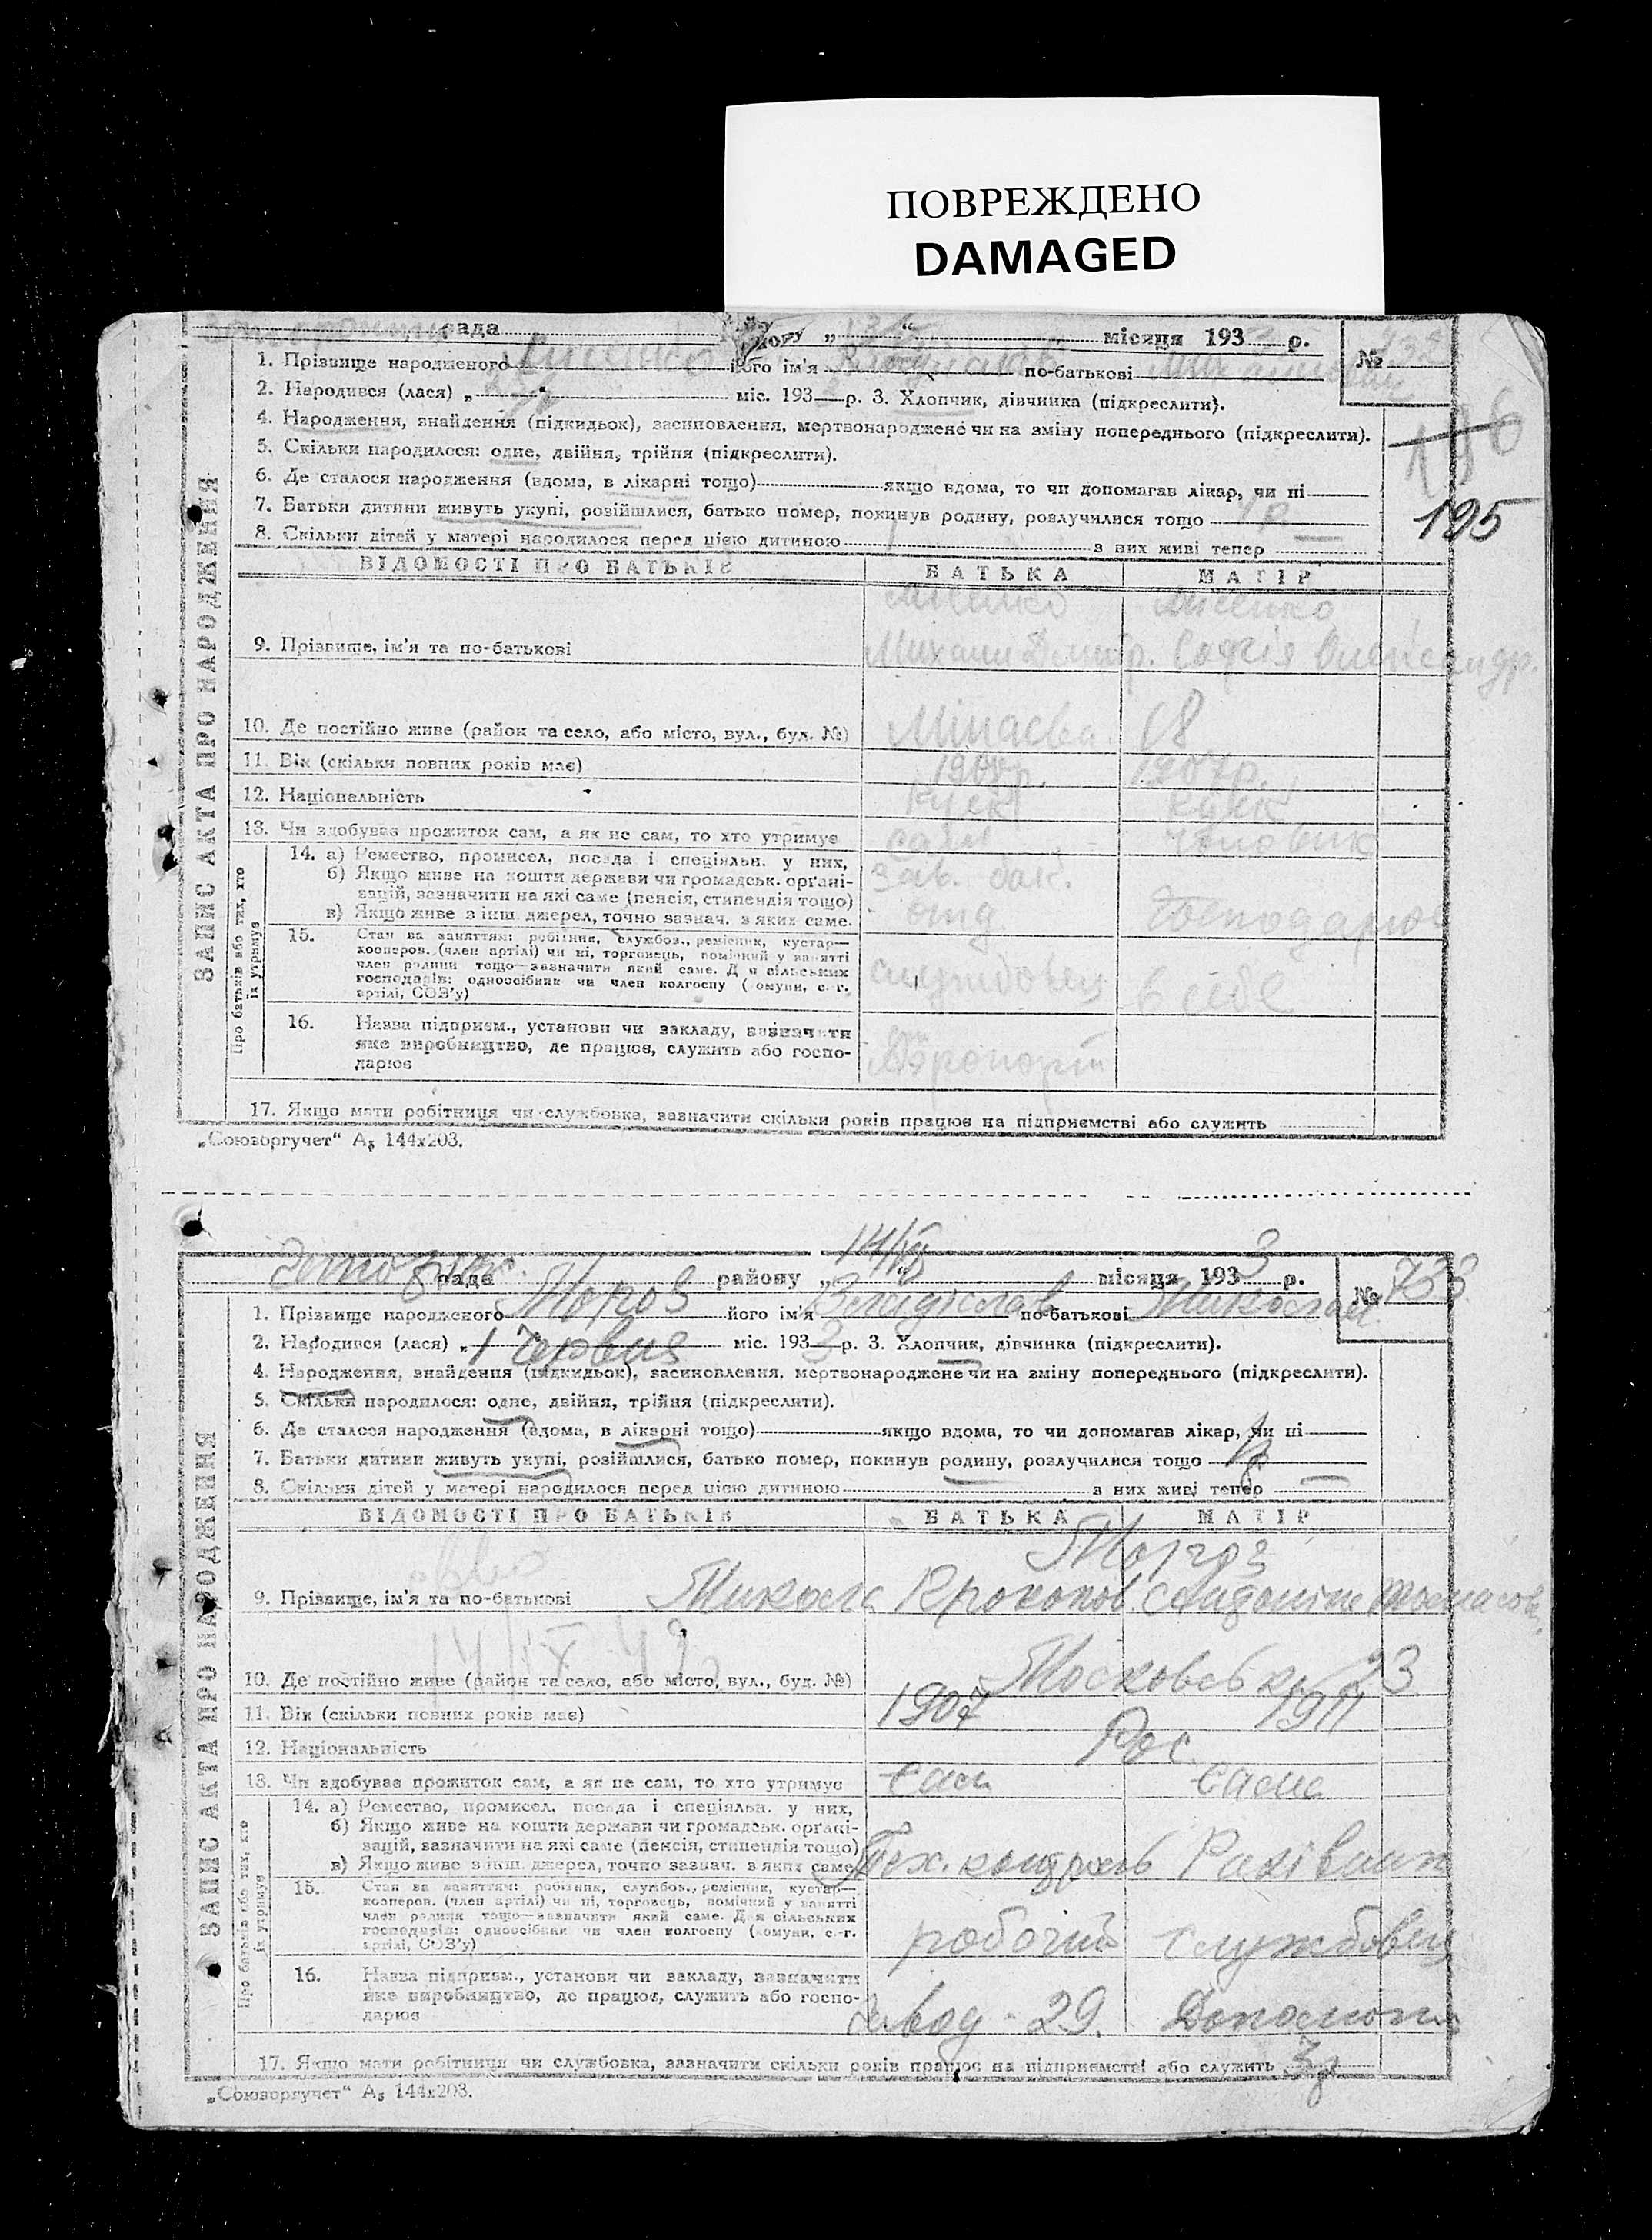 ПОВРЕЖДЕНО
DAMAGED
рада району „ “ місяця 193 3 р. № 732
1. Прізвище народженого Лисенко його ім'я Владислав по-батькові
2. Народився (лася) „ “ міс. 193 р. 3. Хлопчик, дівчинка (підкреслити).
4. Народження, знайдення (підкидьок), засиновлення, мертвонароджене чи на зміну попереднього (підкреслити).
196
5. Скільки народилося: одне, двійня, трійня (підкреслити).
6. Де сталося народження (вдома, в лікарні тощо) якщо вдома, то чи допомагав лікар, чи ні
7. Батьки дитини живуть укупі, розійшлися, батько помер, покинув родину, розлучилися тощо
195
8. Скільки дітей у матері народилося перед цією дитиною в них живі тепер —
ЗАПИС АКТА ПРО НАРОДЖЕННЯ
ВІДОМОСТІ ПРО БАТЬКІВ БАТЬКА МАТІР
Лисенко Лисенко
9. Прізвище, ім'я та по-батькові Михайло Дмитр. Софія Олександр.
10. Де постійно живе (район та село, або місто, вул., буд. №) 68
11. Вік (скільки повних років має) 1907р.
12. Національність
13. Чи здобуває прожиток сам, а як не сам, то хто утримує сам чоловік
Про батьків або тих, хто їх утримує
14. а) Ремество, промисел, посада і спеціяльн. у них,
б) Якщо живе на кошти держави чи громадськ. орґані-
зацій, зазначити на які саме (пенсія, стипендія тощо)
в) Якщо живе з інш. джерел, точно зазнач. з яких саме.
Зав.
15. Стан за заняттям: робітник, службов., ремісник, кустар—
кооперов. (член артілі) чи ні, торговець, помічний у занятті
член родини тощо—зазначити який саме. Для сільських
господарів: одноосібник чи член колгоспу (комуни, с.-г.
артілі, СОЗ'у)
службовець в себе
16. Назва підприєм., установи чи закладу, зазначити
яке виробництво, де працює, служить або госпо-
дарює
Аэропорт
17. Якщо мати робітниця чи службовка, зазначити скільки років працює на підприємстві або служить
„Союзоргучет“ А5 144х203.
рада району „ 14/VI “ місяця 193 3 р. № 733
1. Прізвище народженого Мороз його ім'я Владіслав по-батькові Микола
2. Народився (лася) „ 1 Червня міс. 193 3 р. 3. Хлопчик, дівчинка (підкреслити).
4. Народження, знайдення (підкидьок), засиновлення, мертвонароджене чи на зміну попереднього (підкреслити).
5. Скільки народилося: одне, двійня, трійня (підкреслити).
6. Де сталося народження (вдома, в лікарні тощо) якщо вдома, то чи допомагав лікар, чи ні
7. Батьки дитини живуть укупі, розійшлися, батько помер, покинув родину, розлучилися тощо 1р
8. Скільки дітей у матері народилося перед цією дитиною в них живі тепер —
ЗАПИС АКТА ПРО НАРОДЖЕННЯ
ВІДОМОСТІ ПРО БАТЬКІВ БАТЬКА МАТІР
Мороз
9. Прізвище, ім'я та по-батькові Микола Прокопов
10. Де постійно живе (район та село, або місто, вул., буд. №) Московська 23
11. Вік (скільки повних років має) 1907 1911
12. Національність Рос.
13. Чи здобуває прожиток сам, а як не сам, то хто утримує сам сама
Про батьків або тих, хто їх утримує
14. а) Ремество, промисел, посада і спеціяльн. у них,
б) Якщо живе на кошти держави чи громадськ. орґані-
зацій, зазначити на які саме (пенсія, стипендія тощо)
в) Якщо живе з інш. джерел, точно зазнач. з яких саме
Тех. контроль Рахівник
15. Стан за заняттям: робітник, службов., ремісник, кустар—
кооперов. (член артілі) чи ні, торговець, помічний у занятті
член родини тощо—зазначити який саме. Для сільських
господарів: одноосібник чи член колгоспу (комуни, с.-г.
артілі, СОЗ'у)
робочий службовец
16. Назва підприєм., установи чи закладу, зазначити
яке виробництво, де працює, служить або госпо-
дарює
Завод - 29.
17. Якщо мати робітниця чи службовка, зазначити скільки років працює на підприємстві або служить 3р
„Союзоргучет“ А5 144х203.